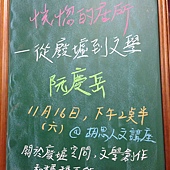 恍惚的居所
—從廢墟到文學
阮慶岳
11月16日,下午2点半
(六) @胡思人文講座
關於廢墟空間,文學創作